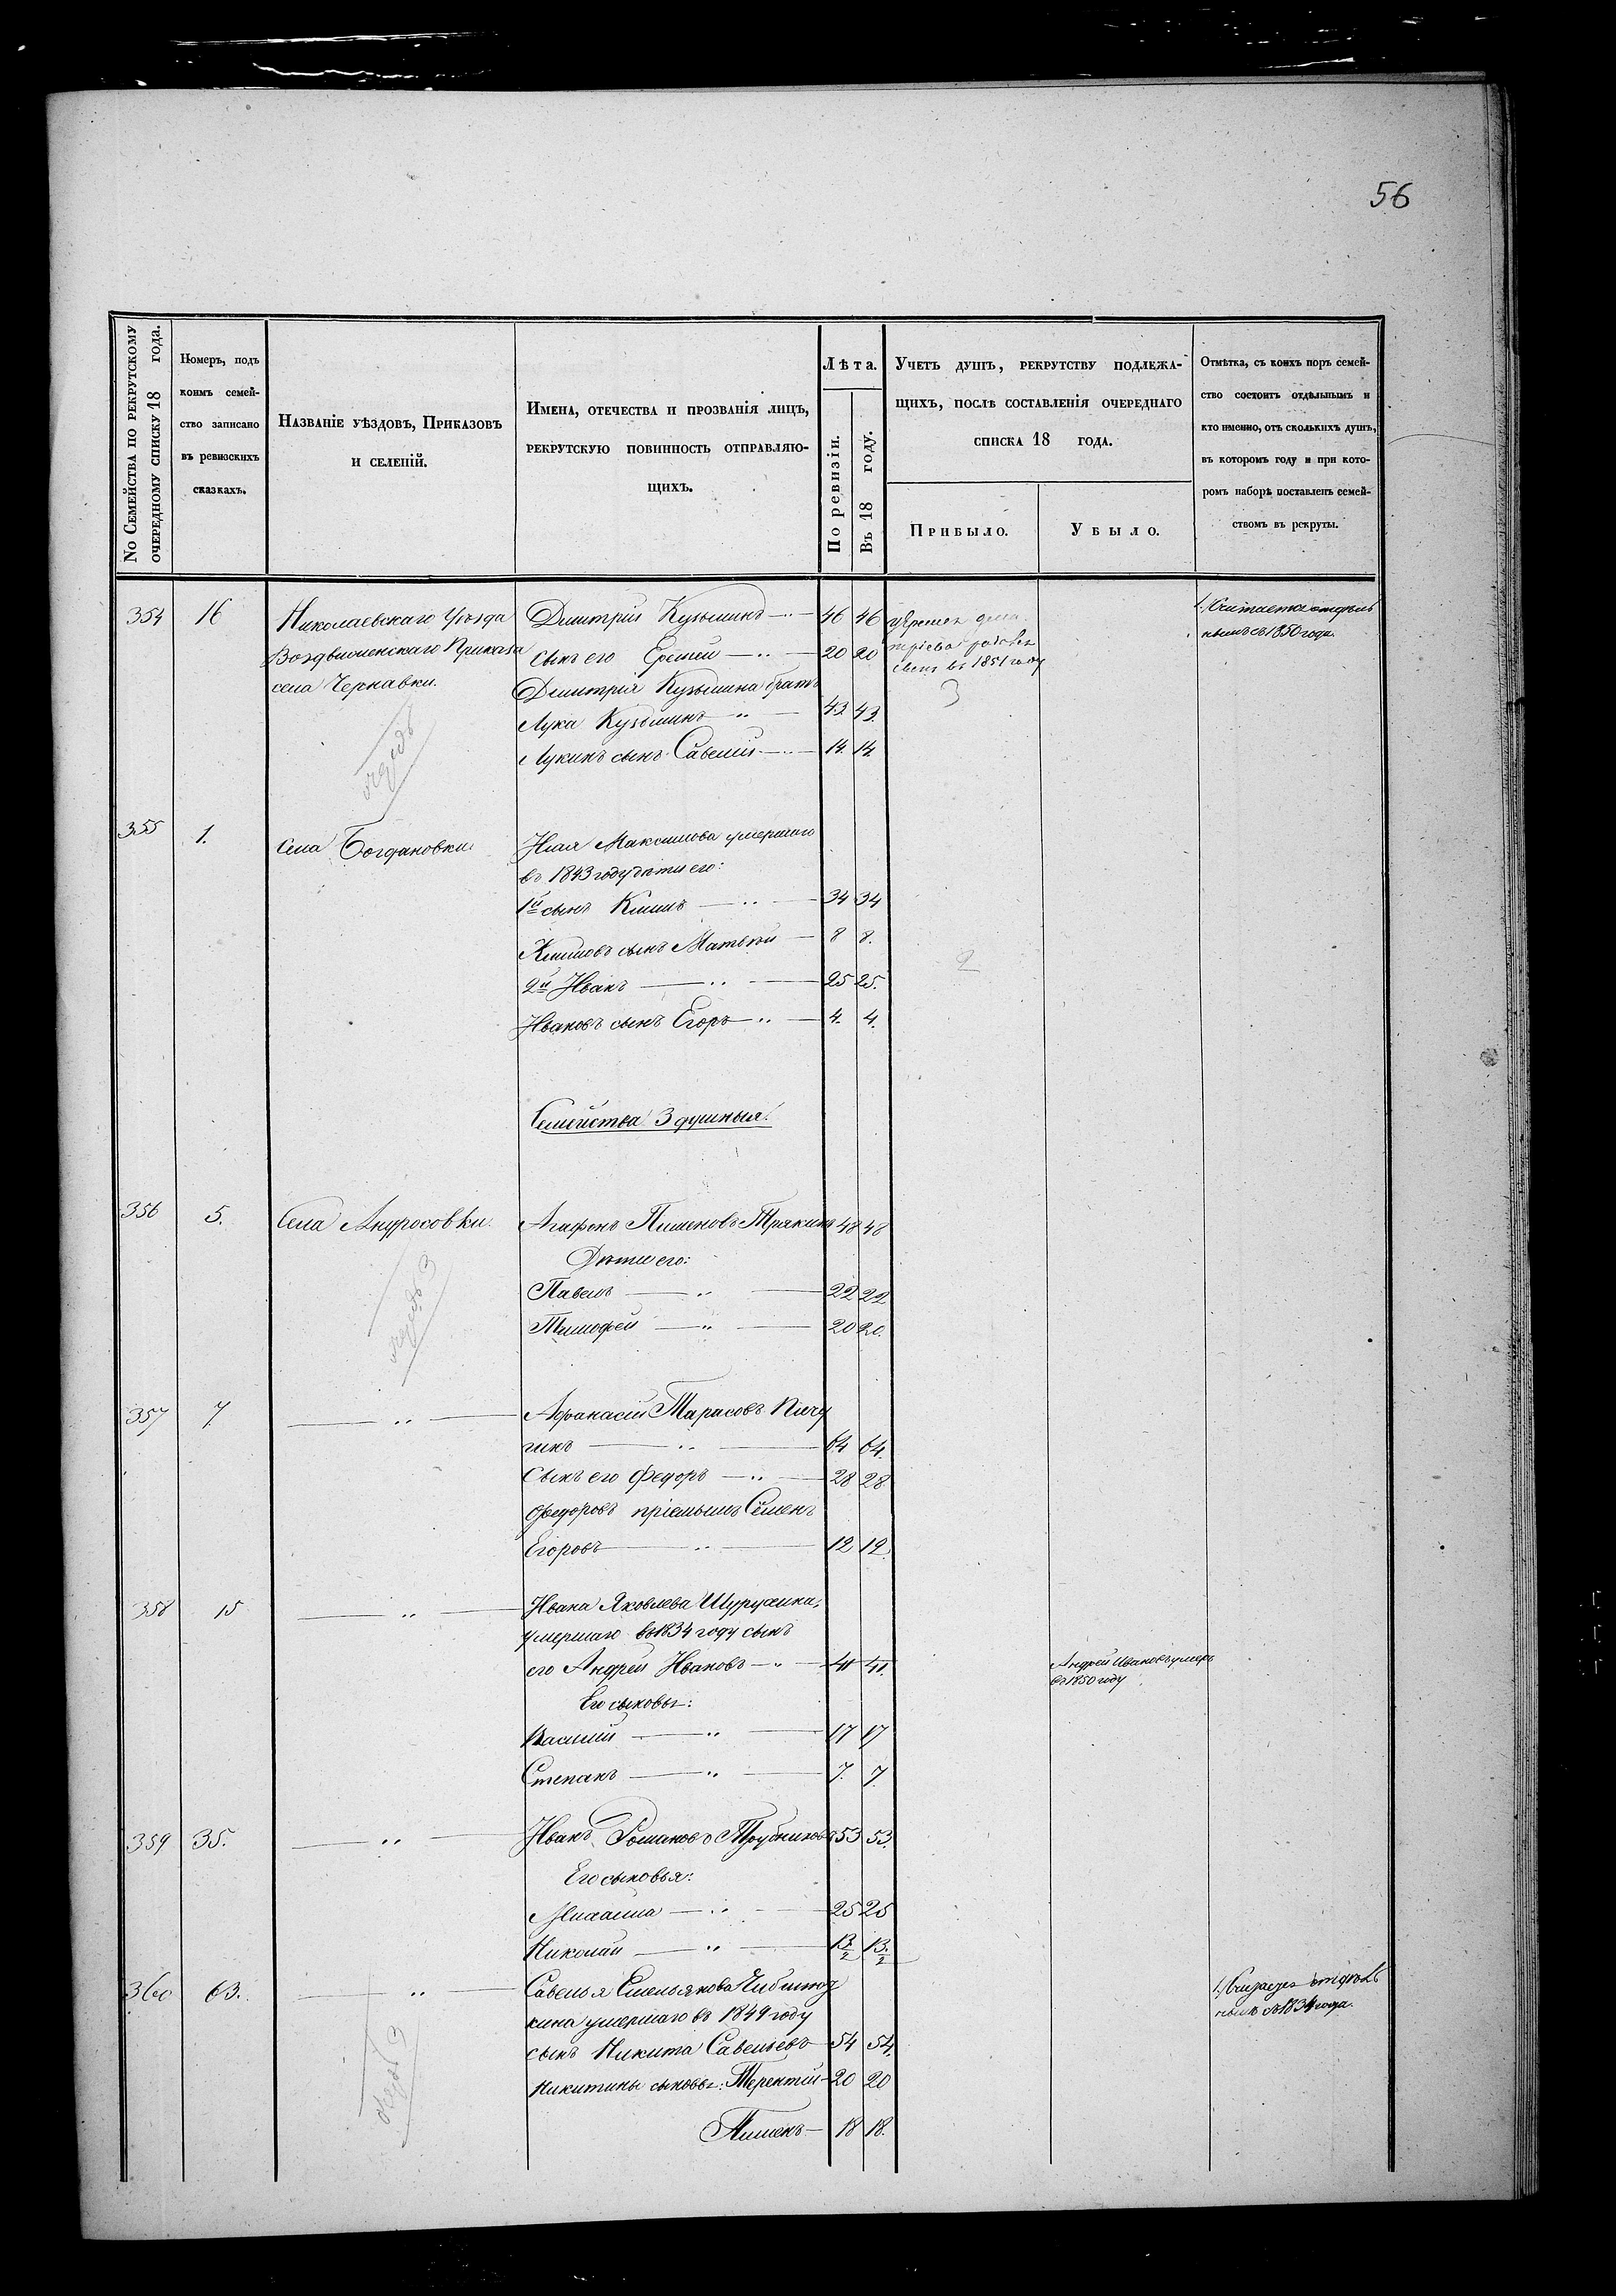 56
No Семейства по рекрутскому
очередному списку 18 года.
Номеръ, подъ
коимъ семей-
ство записано
въ ревизскихъ
сказкахъ.
Названіе уѣздовъ, Приказовъ
и селеній.
Имена, отечества и прозванія лицъ,
рекрутскую повинность отправляю-
щихъ.
Лѣта.
По ревизіи.
Въ 18 году.
Учетъ душъ, рекрутству подлежа-
щихъ, послѣ составленія очереднаго
списка 18 года.
Прибыло.
Убыло.
Отмѣтка, съ коихъ поръ семей-
ство состоитъ отдѣльнымъ и
кто именно, отъ сколькихъ душъ,
въ которомъ году и при кото-
ромъ наборѣ поставленъ семей-
ствомъ въ рекруты.
354 16 Николаевскаго Уѣзда Дмитрій Кузьминъ 46 46
Воздвиженскаго Приказа сынъ его Еремей 20 20
села Чернавки. Дмитрія Кузьмина братъ
Лука Кузьминъ 43 43
Лукинъ сынъ Савелій 14. 14
въ 1851 году
3
1. Считается отдѣль
нымъ съ 1850 года.
355 1. Села Богдановки Ильи Максимова умершаго
въ 1843 году дѣти его:
1й сынъ Климъ 34 34
Климовъ сынъ Матвѣй 8 8.
2й Иванъ 25 25.
Ивановъ сынъ Егоръ 4. 4.
2
Семейства 3 душныя.
356 5. Села Андросовки. Агафонъ Пименовъ Трякинъ 48 48
Дѣти его:
Павелъ 22 22
Тимофей 20 20.
357 7 " Афанасій Тарасовъ Пичу
гинъ 64 64.
Сынъ его Федоръ 28 28
Федоровъ пріемышъ Семенъ
Егоровъ 12 12
358 15 " Ивана Яковлева
умершаго въ 1834 году сынъ
его Андрей Ивановъ 41 41.
Его сыновья:
Василій 17 17
Степанъ 7. 7
Андрей Ивановъ умеръ
въ 1850 году
359 35. " Иванъ Романовъ Трубниковъ 53 53.
Его сыновья:
Михаила 25 25
Николай 13/2 13/2
360 63. " Савелья Емельянова
кина умершаго въ 1849 году
сынъ Никита Савельевъ 54 54.
Никитины сыновья: Терентій 20 20
Пименъ 18 18.
1. Считается отдѣль
нымъ съ 1834 года.